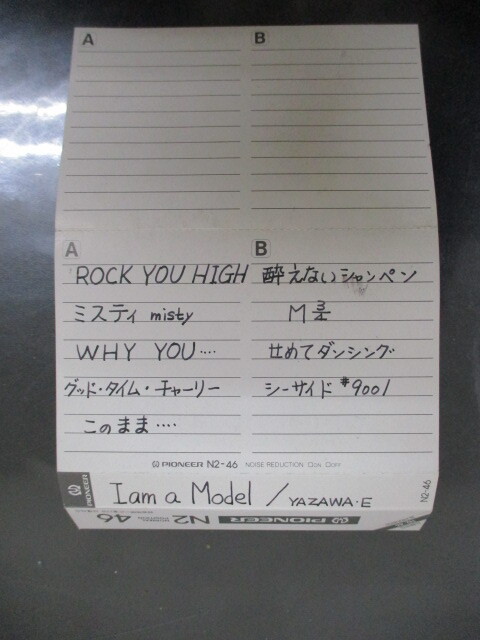 A B
A B
ROCK YOU HIGH 酔えないシャンペン
ミスティ misty M 3/4
WHY YOU‥‥ せめてダンシング
グッド・タイム・チャーリー シーサイド #9001
このまま‥‥
PIONEER N2-46 NOISE REDUCTION □ON □OFF
PIONEER
I am a Model / YAZAWA・E
N2-46
PIONEER N2 46